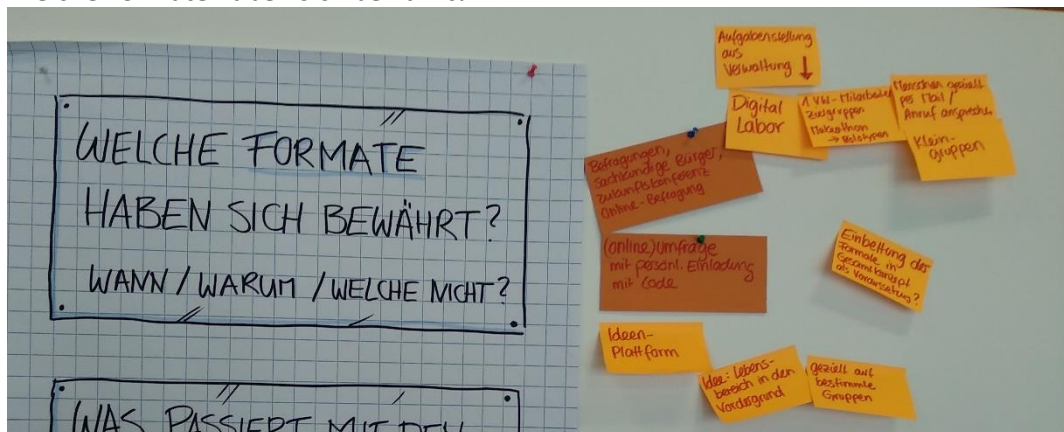 WELCHE FORMATE
HABEN SICH BEWÄHRT?
WANN / WARUM / WELCHE NICHT?
WAS PASSIERT MIT DEN
Aufgabenstellung
aus
Verwaltung
Digital
Labor
1 VW-Mitarbeiter
Zielgruppen
Makeathon
→ Prototypen
Menschen gezielt
per Mail /
Anruf ansprechen
Klein-
gruppen
Befragungen,
Sachkundige Bürger,
Zukunftskonferenz
Online-Befragung
(online) Umfrage
mit persönl. Einladung
mit Code
Einbettung der
Formate in
Gesamtkonzept
als Voraussetzung?
Ideen-
Plattform
Idee: Lebens-
bereich in den
Vordergrund
gezielt auf
bestimmte
Gruppen